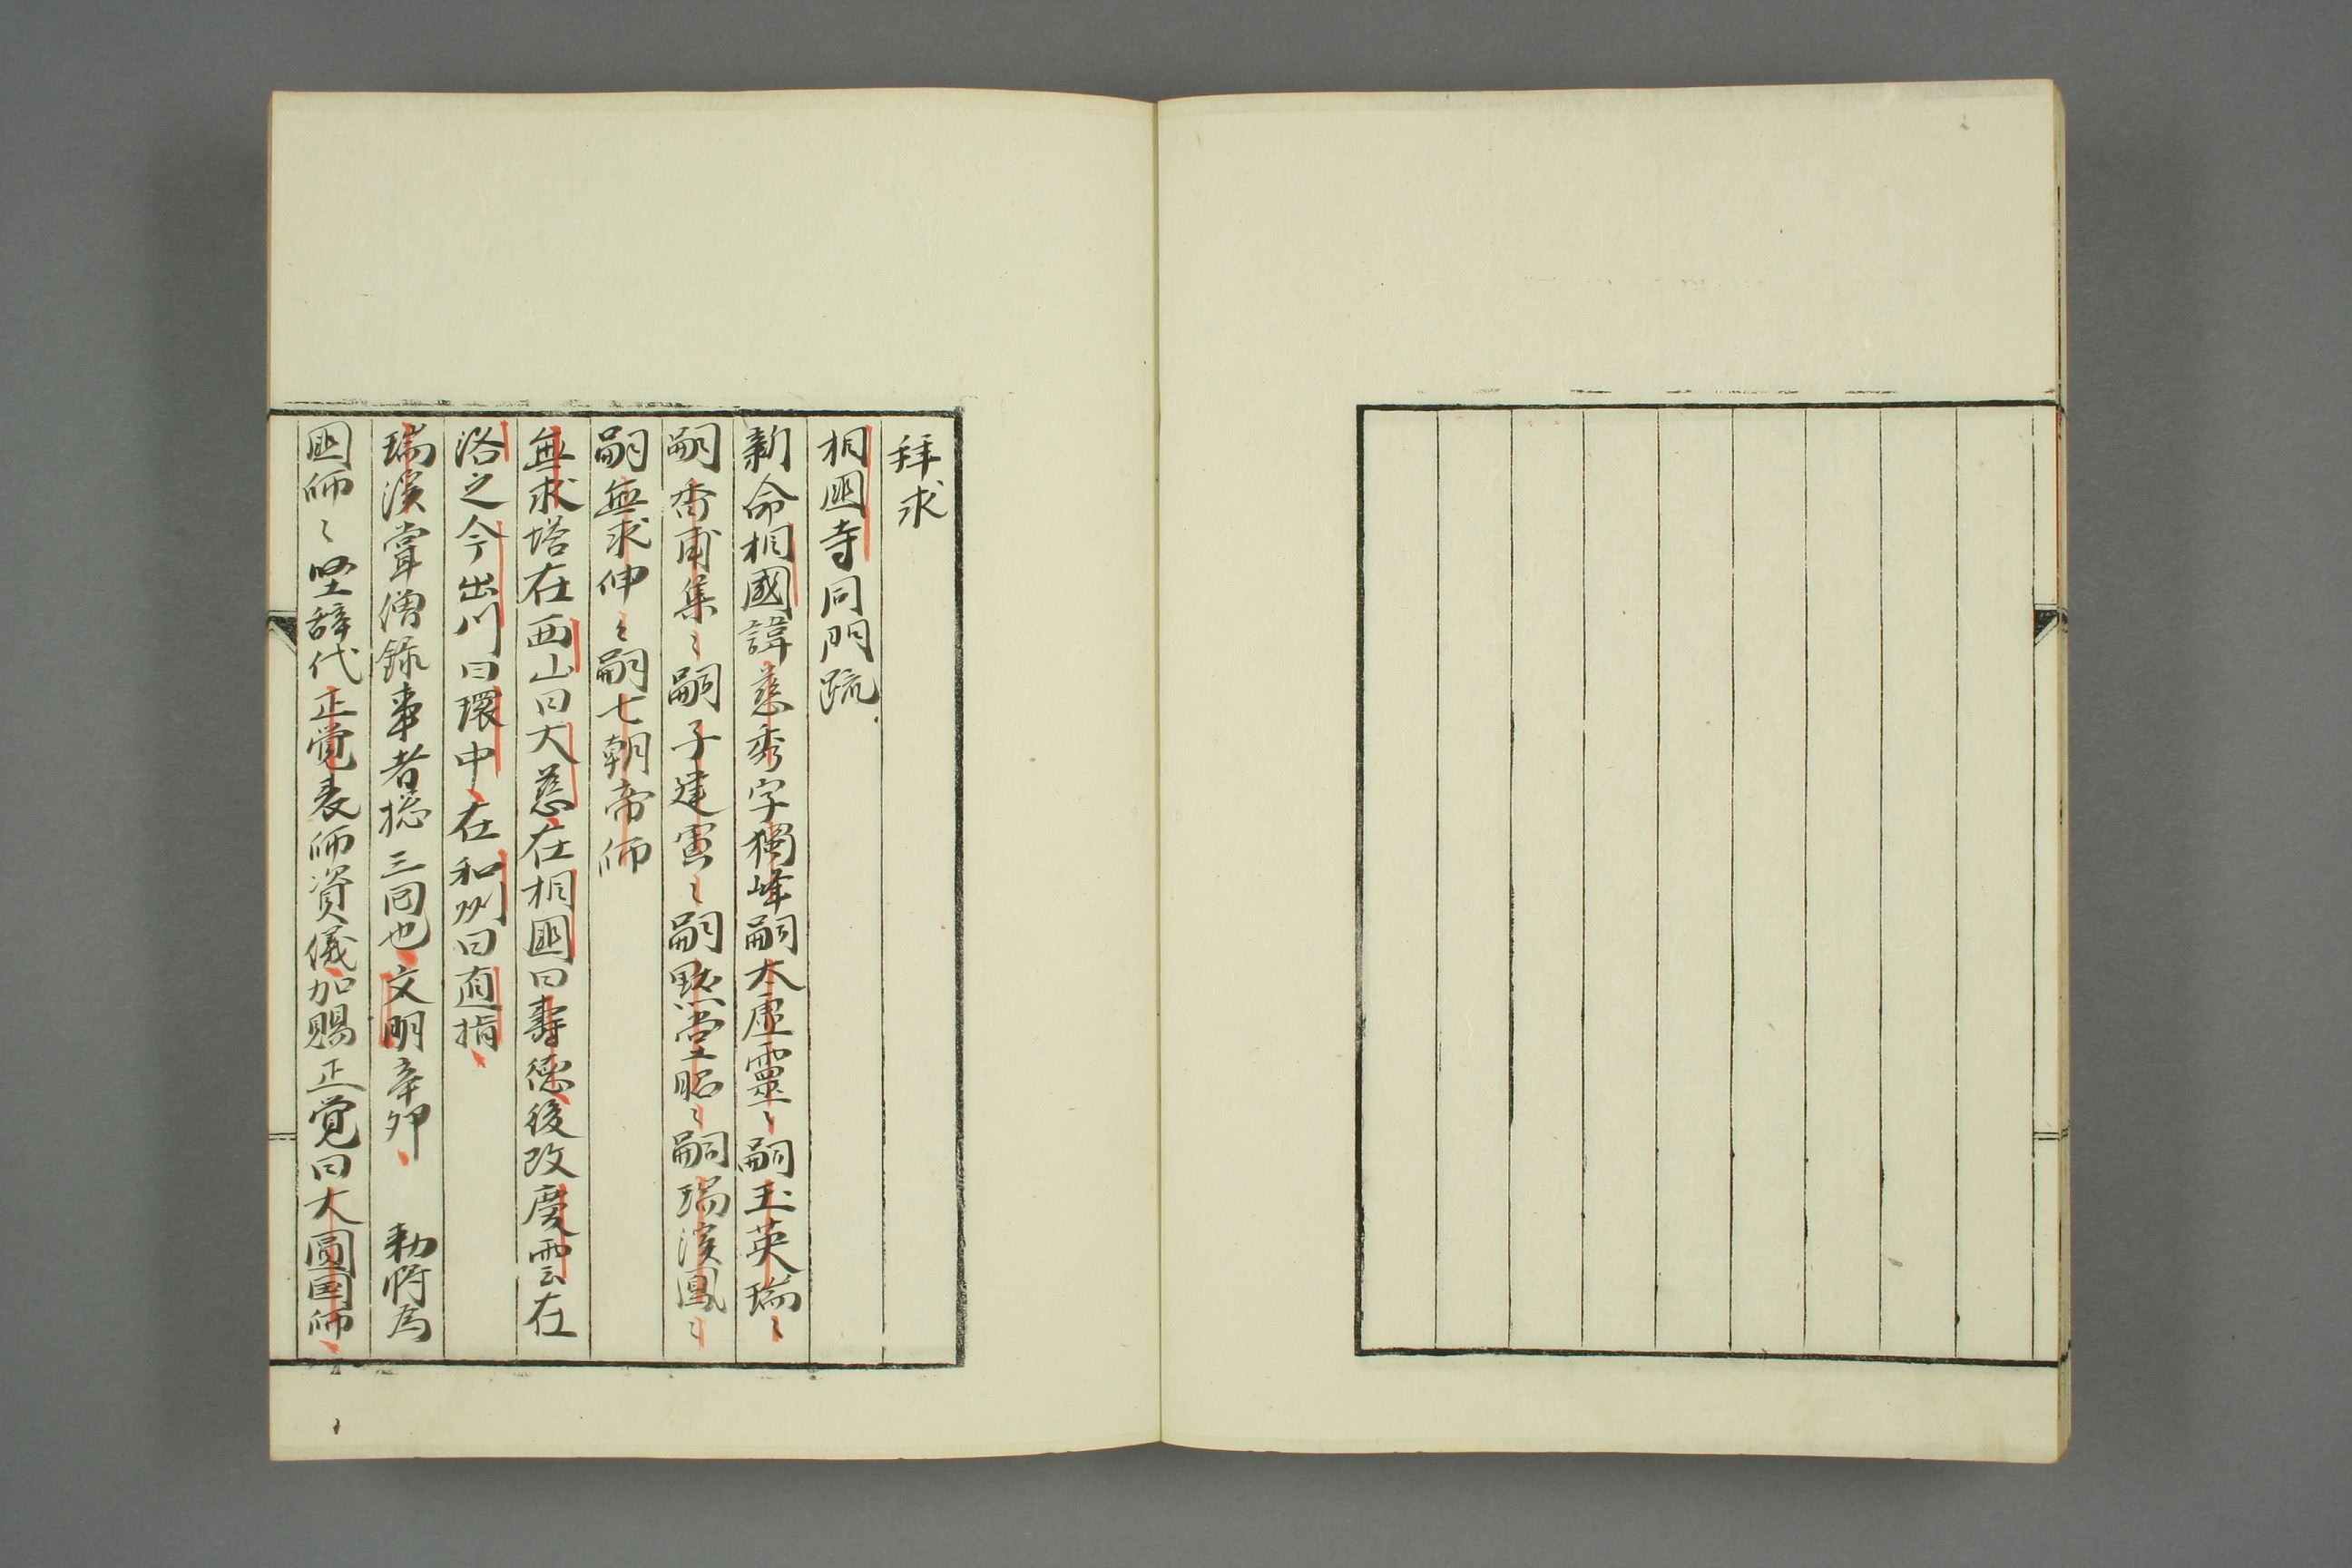 拜求
相國寺同門疏
新命相國諱慈秀字獨峰嗣太虛靈〻嗣玉英瑞〻
嗣香甫集〻嗣子建寅〻嗣黙堂昭〻嗣瑞溪鳳〻
嗣無求伸〻嗣七朝帝師
無求塔在西山曰大慈在相國曰壽德後改慶雲在
洛之今出川曰環中在和州曰直指
瑞溪掌僧録事者捴三回也文明辛卯 勅將為
國師〻堅辞代正覚表師資儀加賜正覚曰大圓国師〻